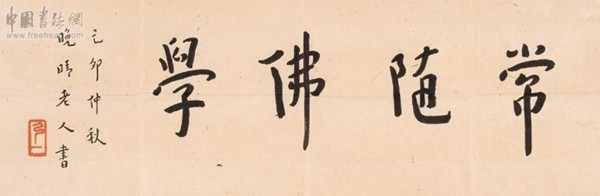 常隨佛學
己卯仲秋
晚晴老人書
中國書法網